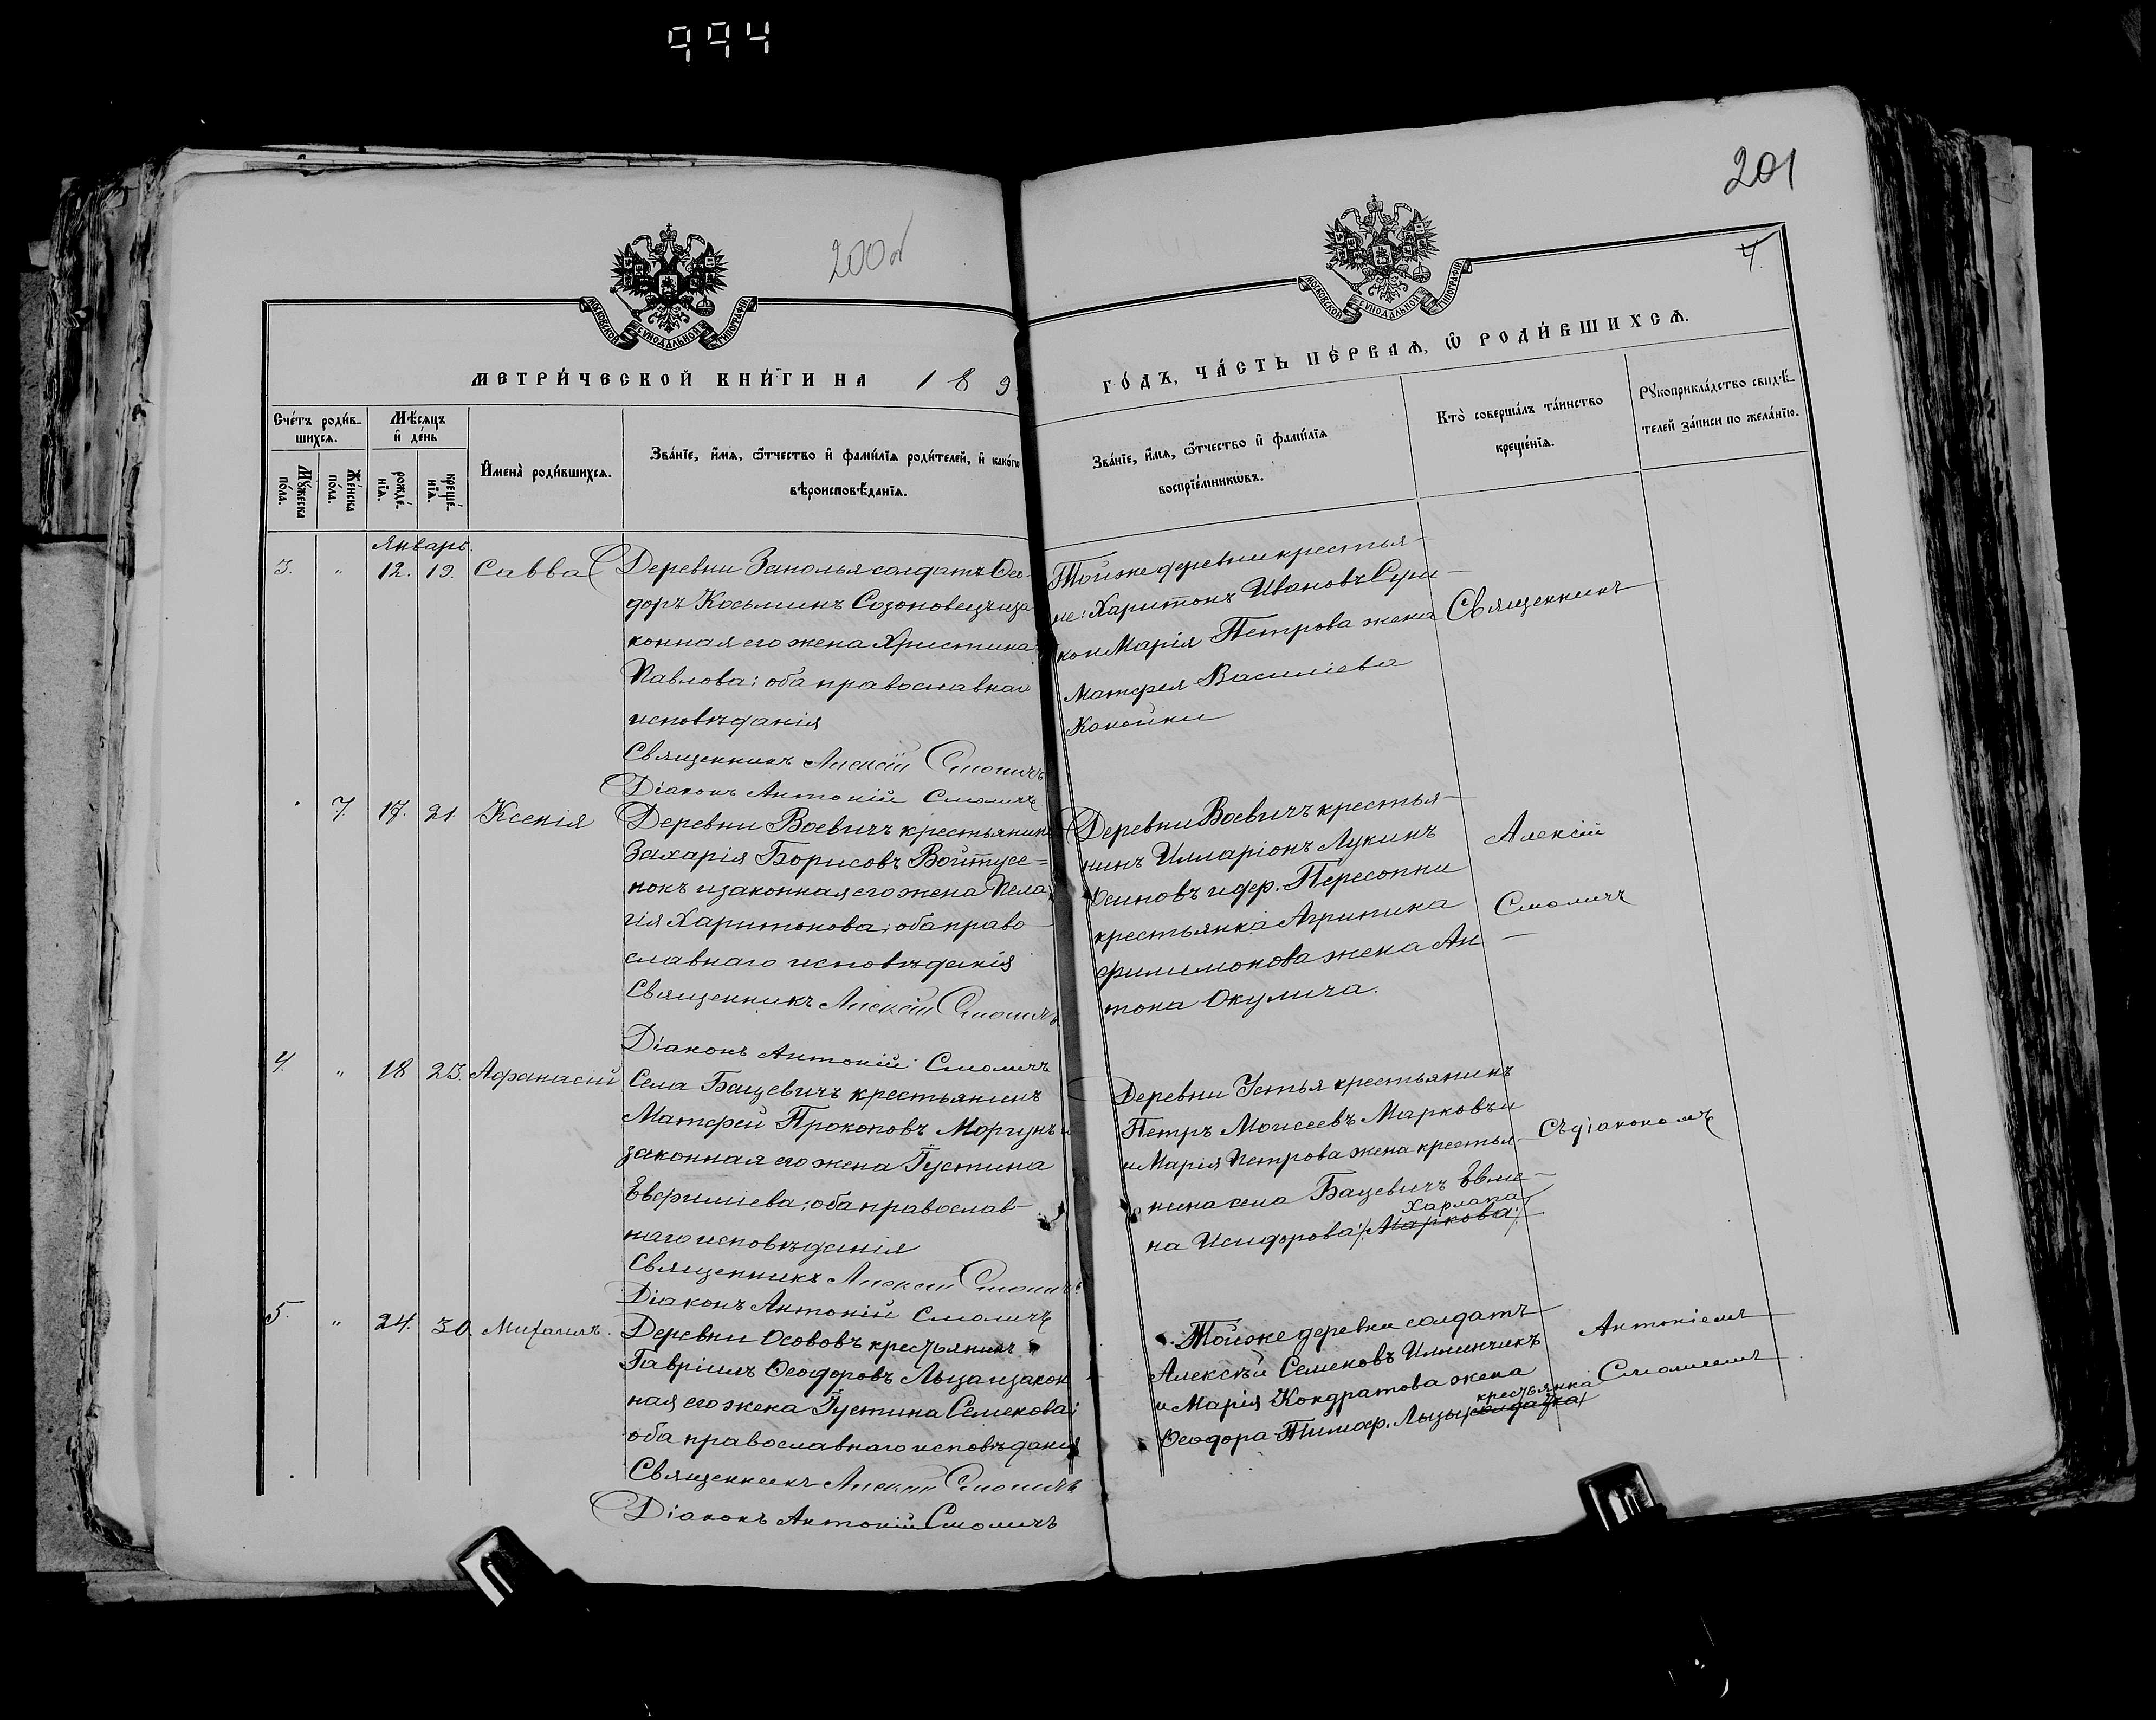 994
200об
201
4.
МОСКОВСКОЙ СУНОДАЛЬНОЙ ТИПОГРАФІИ
МОСКОВСКОЙ СУНОДАЛЬНОЙ ТИПОГРАФІИ
МЕТРИ́ЧЕСКОЙ КНИ́ГИ НА 189
ГО́ДЪ, ЧА́СТЬ ПЕ́РВАѦ, Ѿ РОДИ́ВШИХСѦ.
Сче́тъ роди́в-
шихсѧ.
Мꙋ́жеска по́ла.
Же́нска по́ла.
Мѣ́сѧцъ
и҆ де́нь
рожде́-
нїѧ.
креще́-
нїѧ.
И҆мена̀ роди́вшихсѧ.
Зва́нїе, и҆́мѧ, ѻ҆́тчество и҆ фами́лїѧ роди́телей, и҆ како́гѡ
вѣроисповѣ́данїѧ.
Зва́нїе, и҆́мѧ, ѻ҆́тчество и҆ фами́лїѧ
воспрїе́мникѡвъ.
Кто̀ соверша́лъ та́инство
креще́нїѧ.
Рꙋкоприкла́дство свидѣ́-
телей за́писи по жела́нїю.
Январь.
3. " 12. 19. Савва
Деревни Заполья солдатъ Ѳео-
доръ Косьминъ Созоновецъ и за
конная его жена Христина
Павлова; оба православнаго
исповѣданія
Священникъ Алексій Смоличъ
Діаконъ Антоній Смоличъ
Той же деревни крестья-
не: Харитонъ Ивановъ
и Марія Петрова жена
Матфея Василіева
Священникъ
7. 17. 21. Ксенія
Деревни Воевичъ крестьянинъ
Захарія Борисовъ Войтусе=
нокъ и законная его жена Пела
гія Харитонова; оба право
славнаго исповѣданія
Священникъ Алексій Смоличъ
Діаконъ Антоній Смоличъ
Деревни Воевичъ крестья-
нинъ Илларіонъ Лукинъ
Осиновъ и дер. Пересопни
крестьянка Агрипина
Филимонова жена Ан-
тона Окулича.
Алексій
Смоличъ
4. " 18 23. Афанасій
Села Бацевичъ крестьянинъ
Матфей Прокоповъ Моргунъ и
законная его жена Густина
Евфиміева; оба православ-
наго исповѣданія
Священникъ Алексій Смоличъ
Діаконъ Антоній Смоличъ
Деревни Устья крестьянинъ
Петръ Моисеевъ Марковъ и
и Марія Петрова жена крестья-
нина села Бацевичъ Евме-
Харлапа
на Исидорова /Маркова/
Съ діакономъ
5. " 24. 30. Михаилъ.
Деревни Осововъ крестьянинъ
Гавріилъ Ѳеодоровъ Лыза и закон
ная его жена Густина Семенова;
оба православнаго исповѣданія
Священникъ Алексій Смоличъ
Діаконъ Антоній Смоличъ
Той же деревни солдатъ
Алексѣй Семеновъ Илминчикъ
и Марія Кондратова жена
крестьянка
Ѳеодора Тимоф. Лызы /солдатка/
Антоніемъ
Смоличемъ